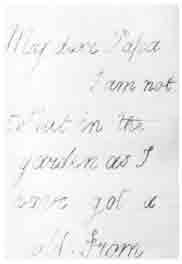 My dear Papa
I am not
out in the
garden as I
have got a
old. From